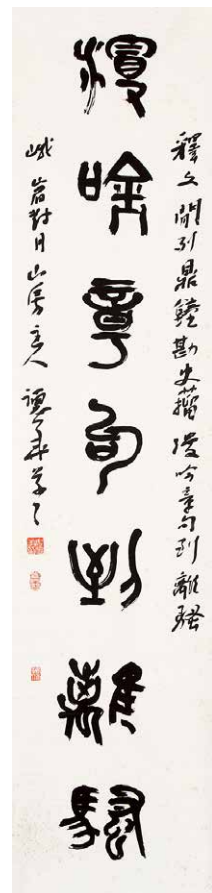 釋文 閒列鼎鐘勘史籀 漫吟章句到離騷
漫吟章句到離騷
峨嵒對月山房主人